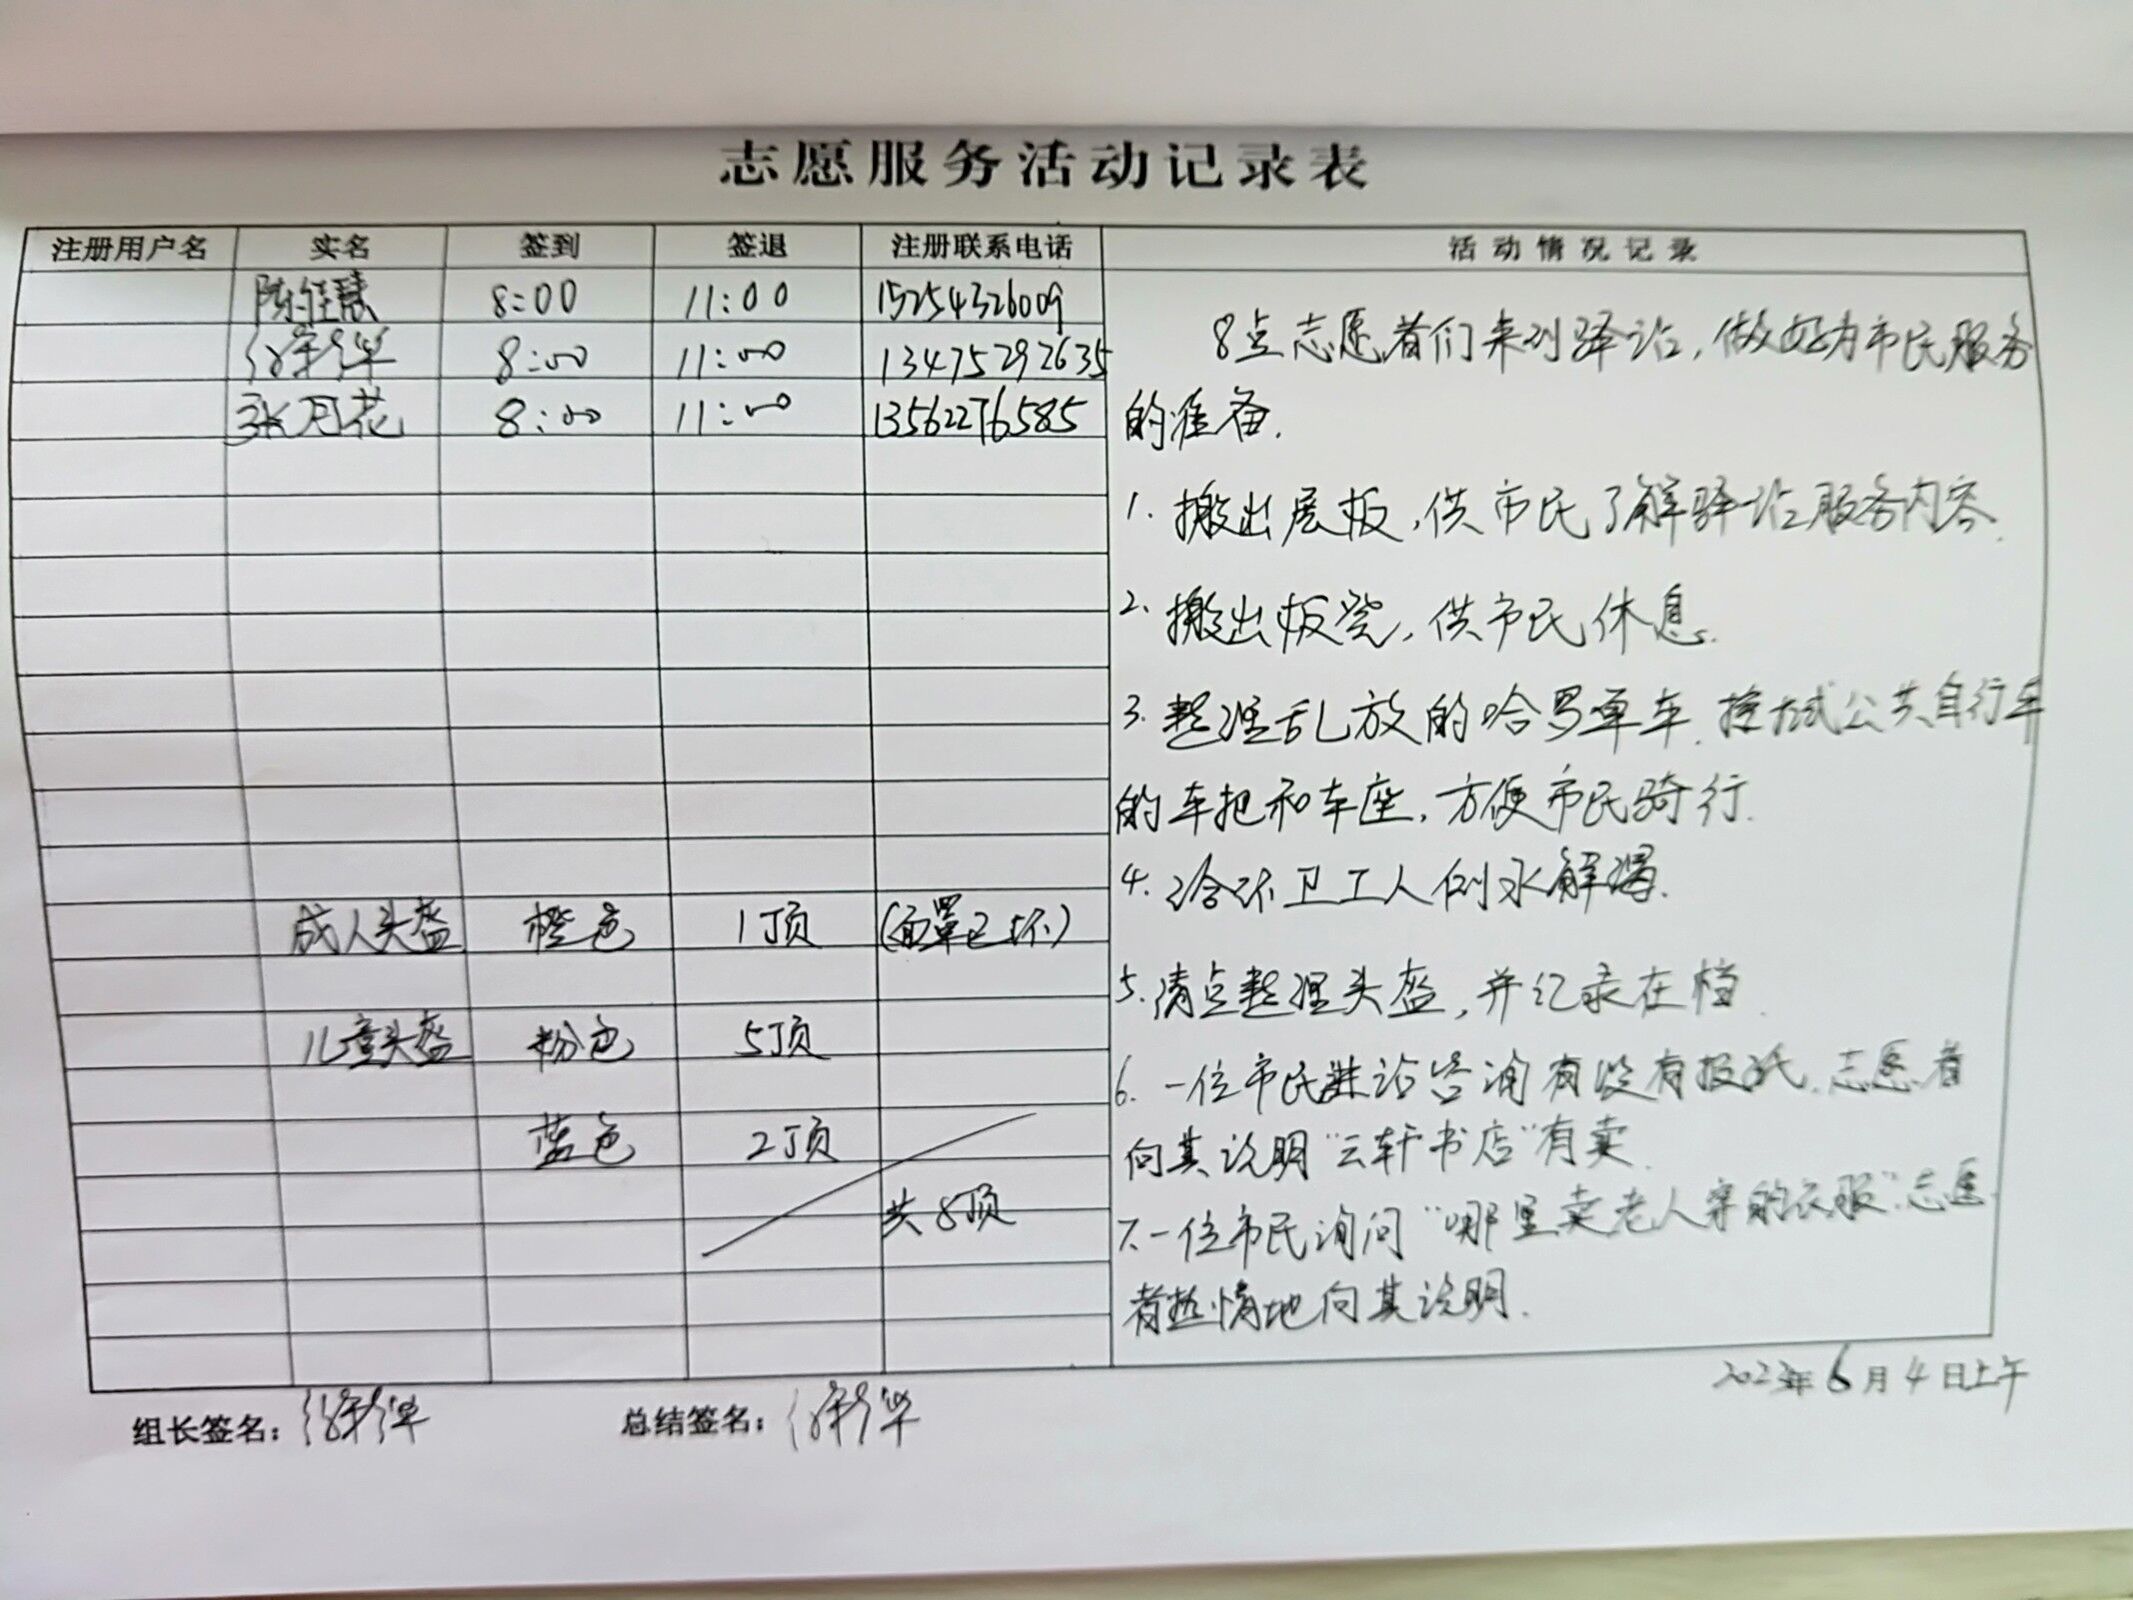 志愿服务活动记录表
注册用户名 实名 签到 签退 注册联系电话 活动情况记录
陈佳慧 8:00 11:00 15254326009
8:00 11:00 13475292635
张月花 8:00 11:00 13562276585
成人头盔 橙色 1顶 (面罩已坏)
儿童头盔 粉色 5顶
蓝色 2顶
共8顶
8点志愿者们来到驿站,做好为市民服务
的准备.
1. 搬出展板,供市民了解驿站服务内容.
2. 搬出板凳,供市民休息.
3. 整理乱放的哈罗单车. 公共自行车
的车把和车座,方便市民骑行.
4. 给环卫工人倒水解渴.
5. 清点整理头盔,并记录在档
6. 一位市民进站咨询有没有报纸.志愿者
向其说明"云轩书店"有卖.
7. 一位市民询问"哪里卖老人穿的衣服".志愿
者热情地向其说明.
2023年6月4日上午
组长签名: 总结签名: